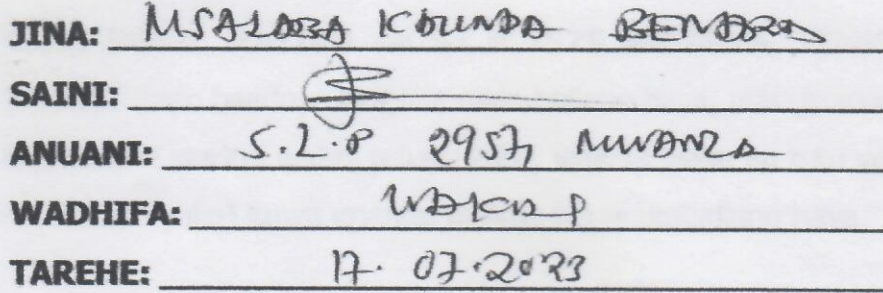 JINA: MSALABA KAUNDA BENARD
SAINI:
ANUANI: S.L.P 2957, MWANZA
WADHIFA: WAKILI
TAREHE: 17.07.2023